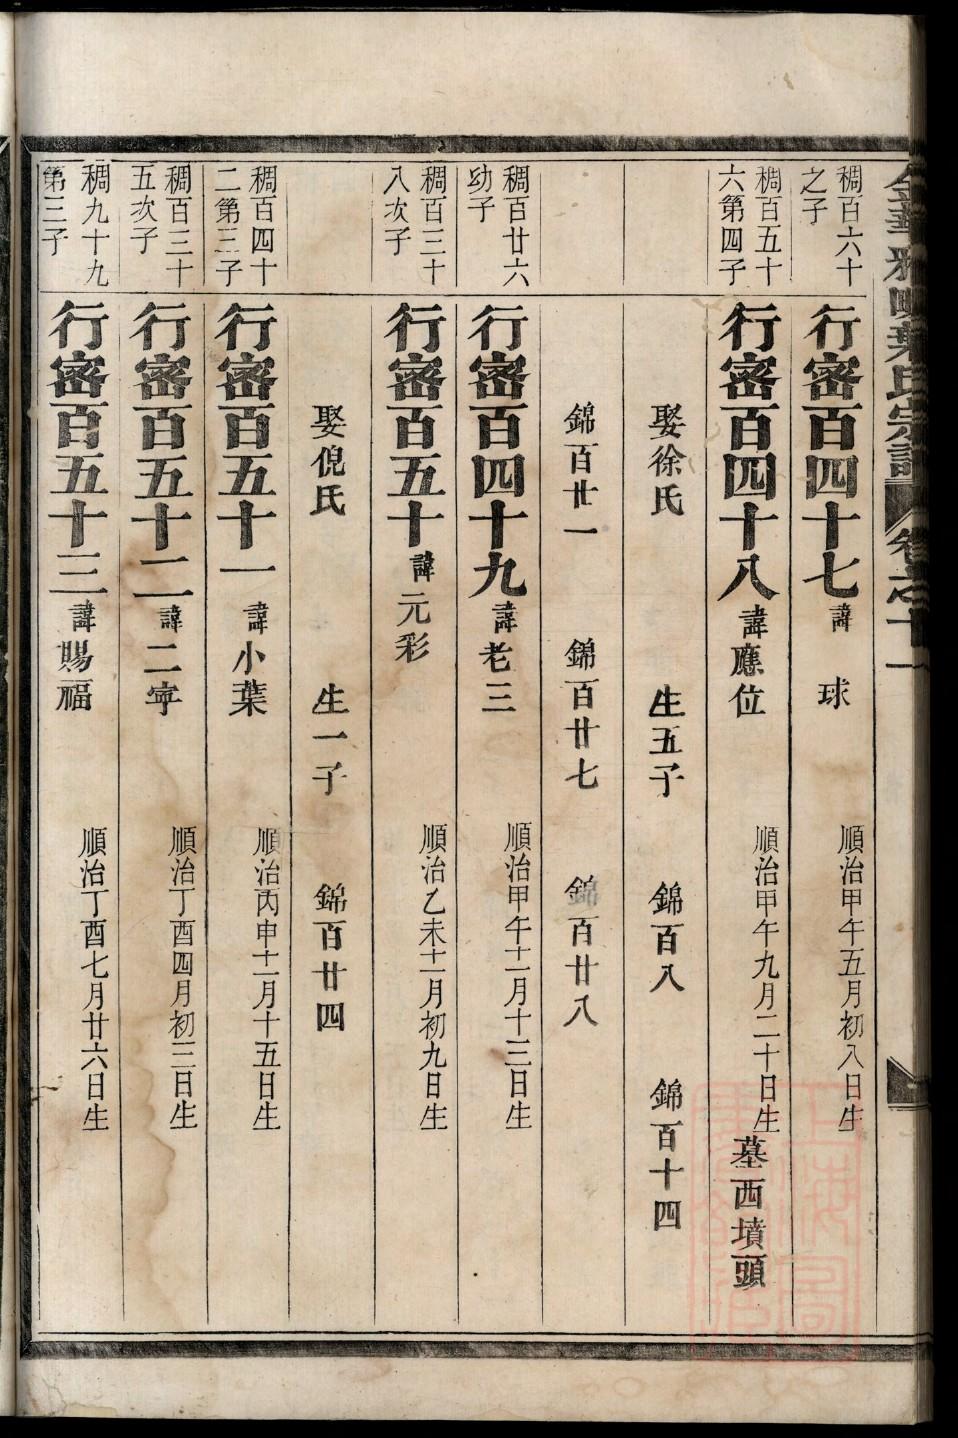 金華雅畈葉氏宗譜 卷之十一
稠百六十之子
行密百四十七 諱球 順治甲午五月初八日生
稠百五十六第四子
行密百四十八 諱應位 順治甲午九月二十日生 墓西墳頭
娶徐氏 生五子 錦百八 錦百十四
錦百廿一 錦百廿七 錦百廿八
稠百廿六幼子
行密百四十九 諱老三 順治甲午十二月十三日生
稠百三十八次子
行密百五十 諱元彩 順治乙未十一月初九日生
娶倪氏 生一子 錦百廿四
稠百四十二第三子
行密百五十一 諱小葉 順治丙申十二月十五日生
稠百三十五次子
行密百五十二 諱二寕 順治丁酉四月初三日生
稠九十九第三子
行密百五十三 諱賜福 順治丁酉七月廿六日生